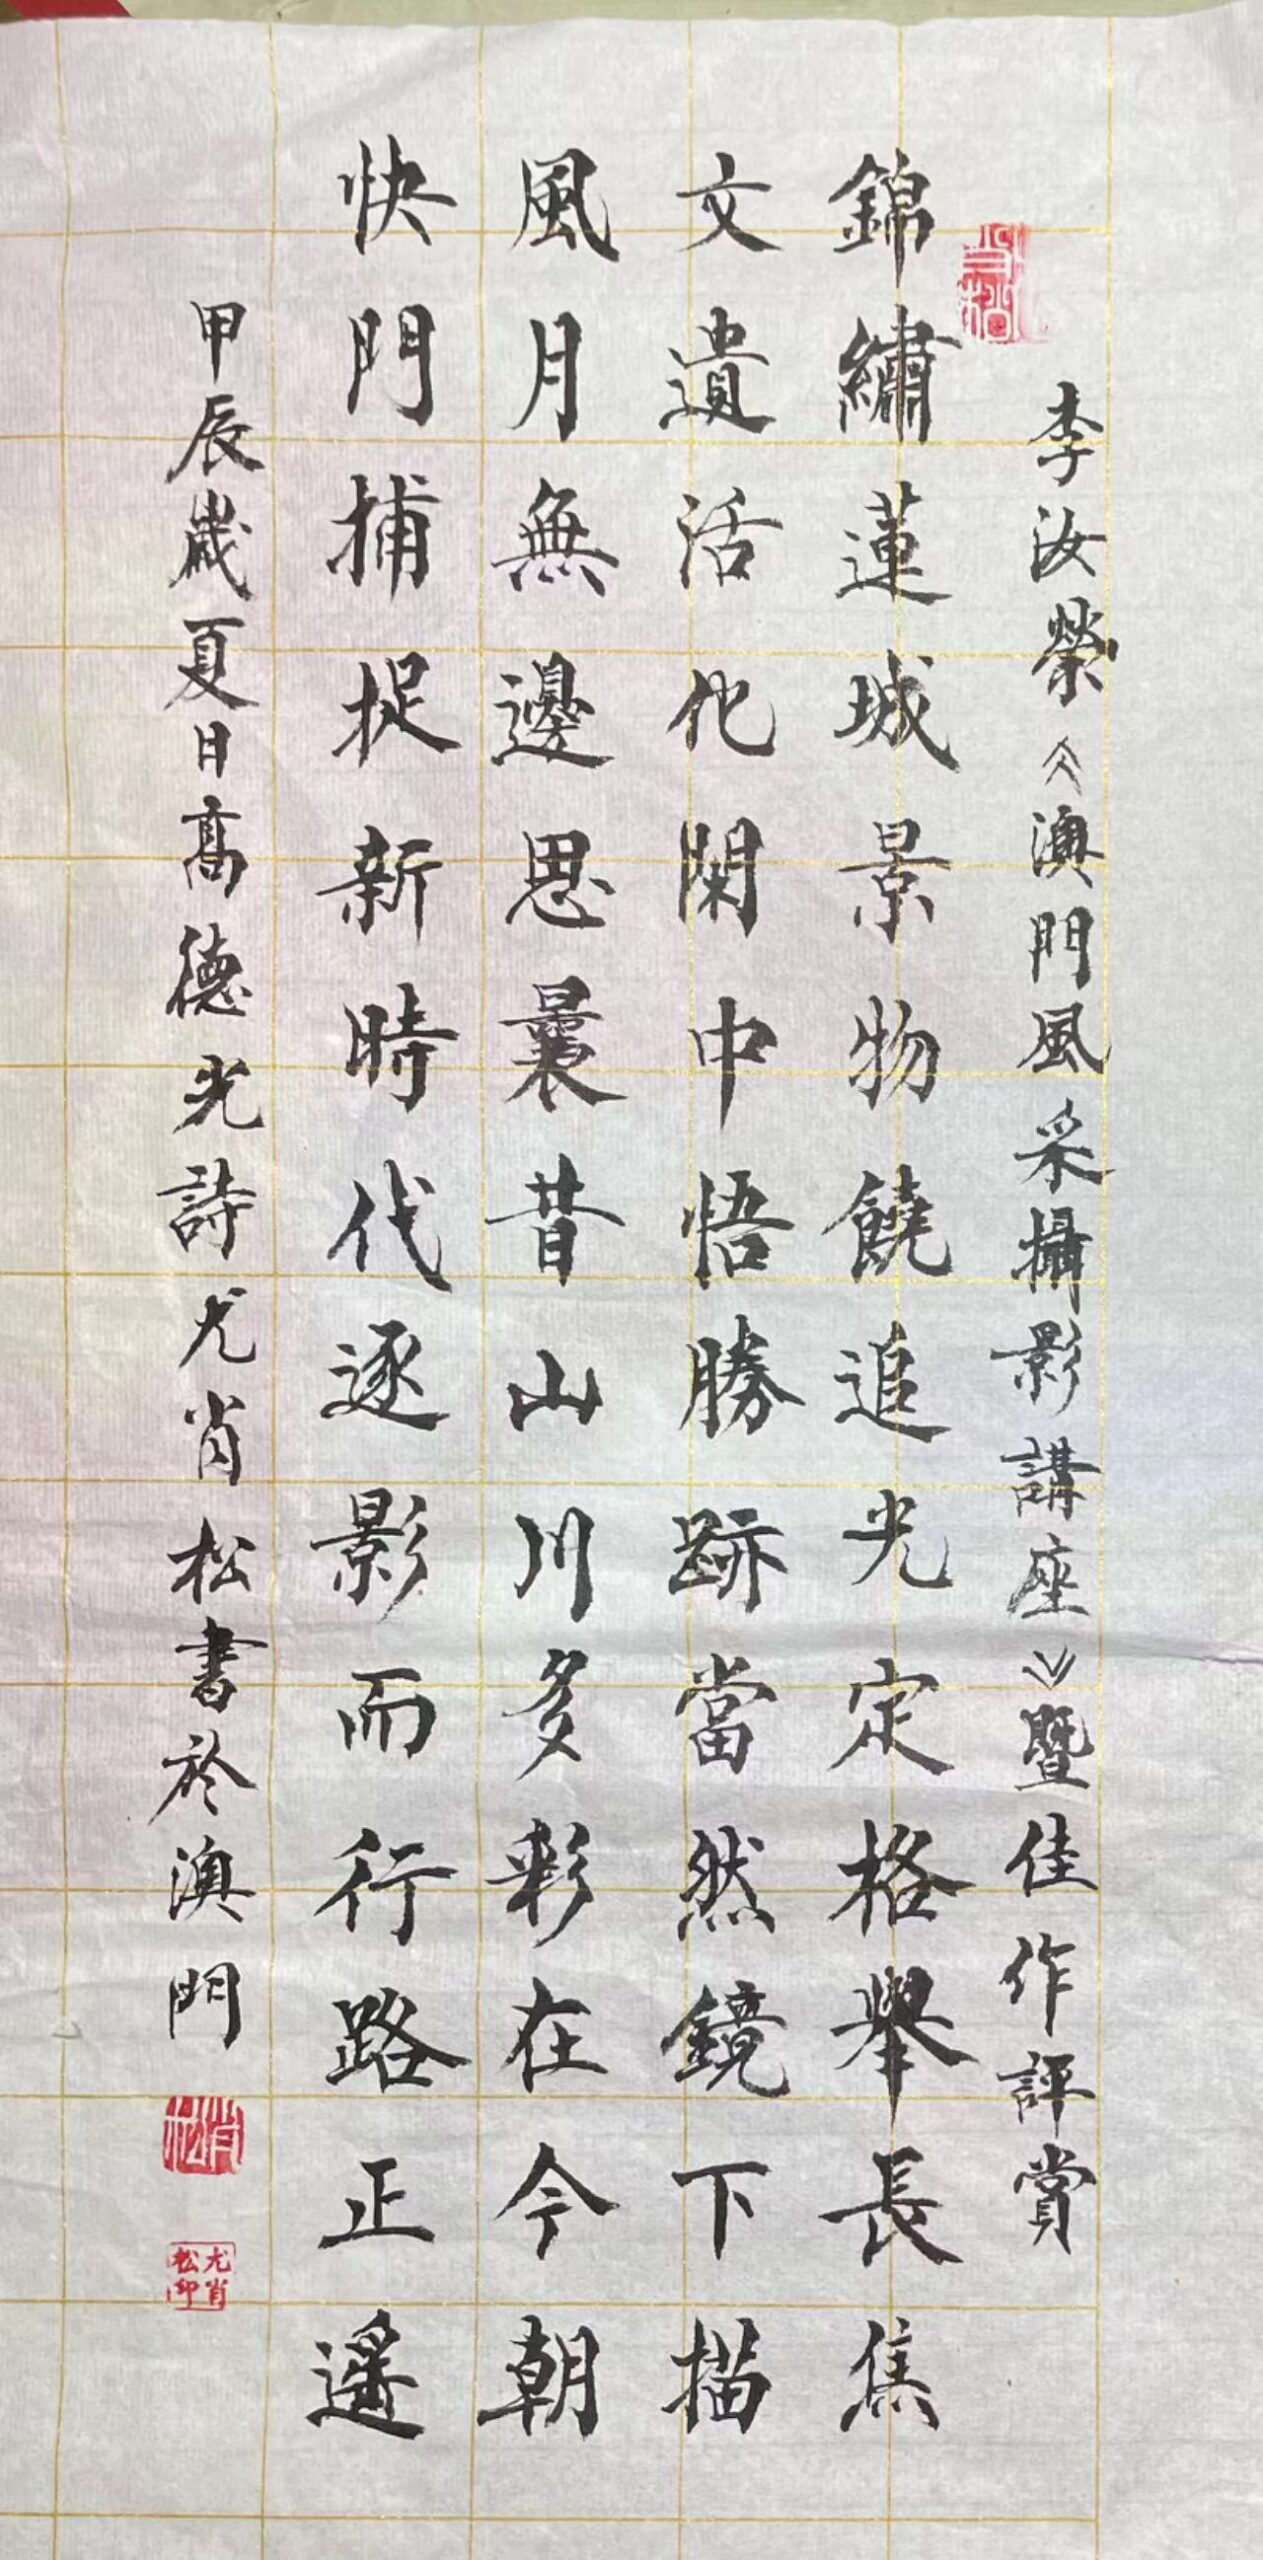 李汝榮《澳門風采攝影講座》暨佳作評賞
錦繡蓮城景物饒追光定格舉長焦
文遺活化閑中悟勝跡當然鏡下描
風月無邊思曩昔山川多彩在今朝
快門捕捉新時代逐影而行路正遥
甲辰歲夏日高德光詩尤肖松書於澳門
肖松
尤肖松印